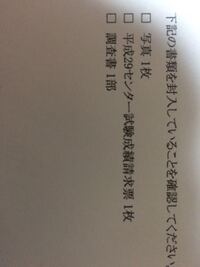 下記の書類を封入していることを確認してください。
□ 写真 1枚
□ 平成29センター試験成績請求票 1枚
□ 調査書 1部